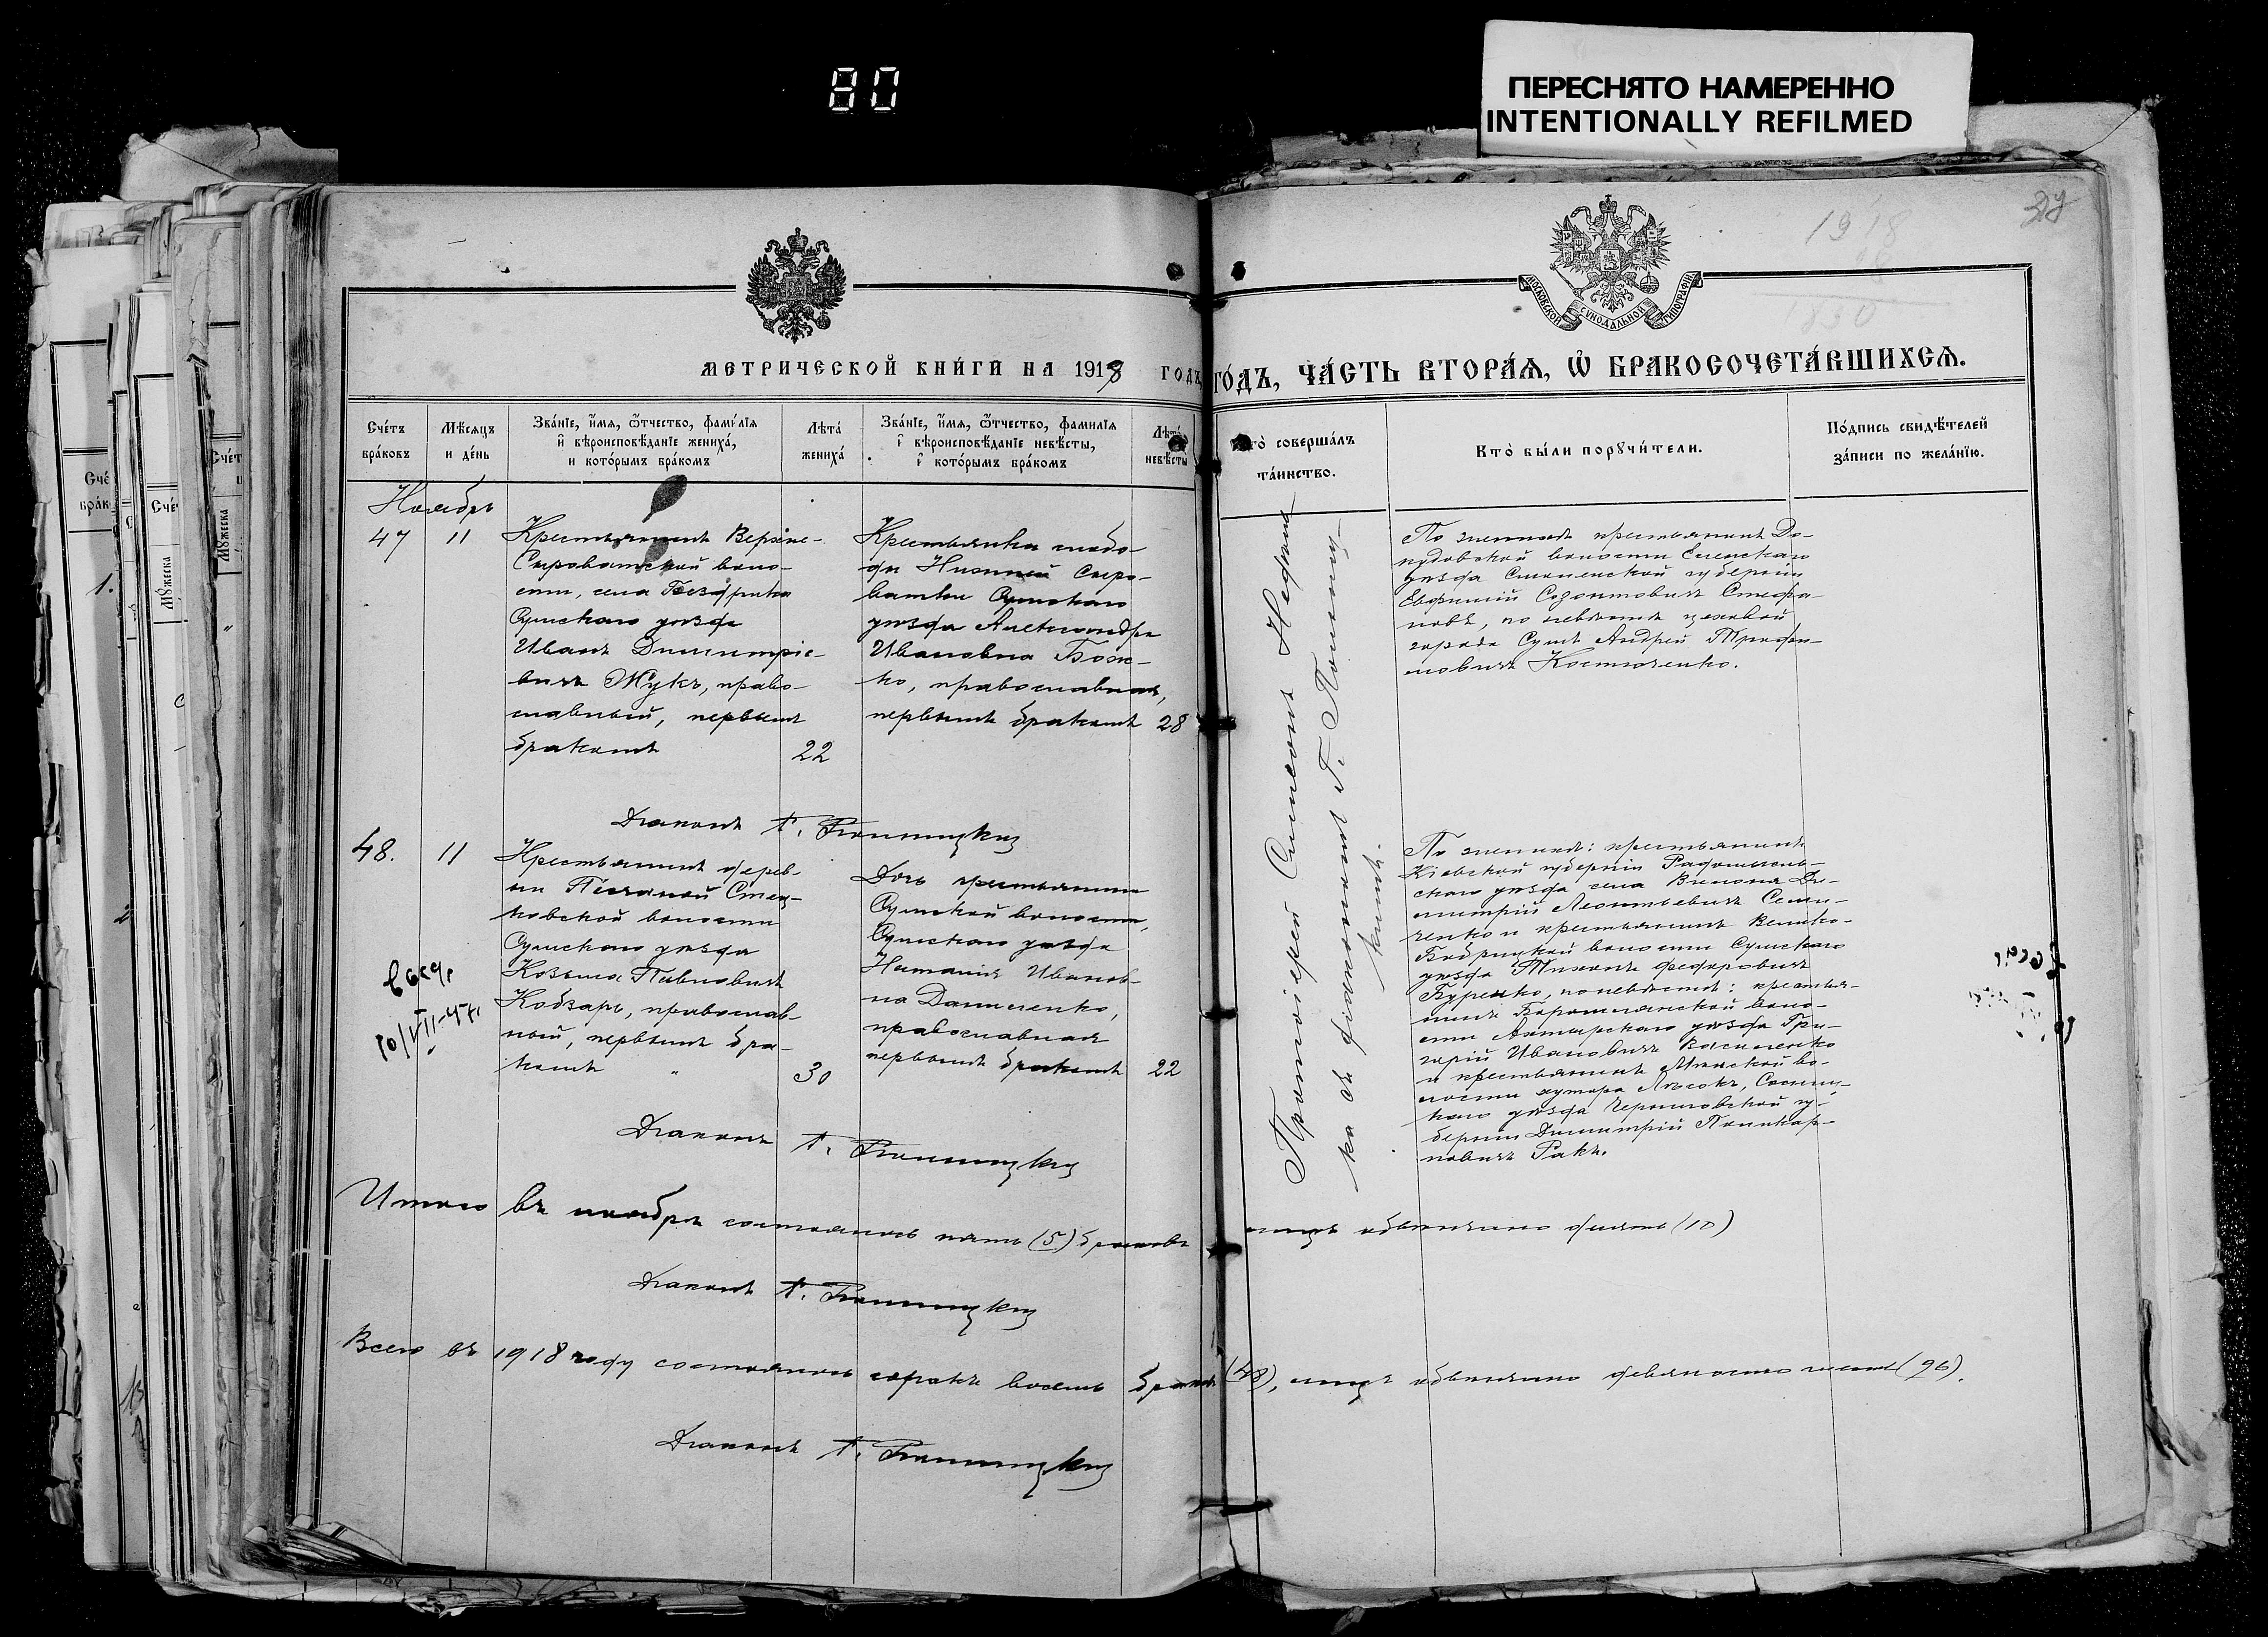 80
ПЕРЕСНЯТО НАМЕРЕННО
INTENTIONALLY REFILMED
1918
МОСКОВСКОЙ СѴНОДАЛЬНОЙ ТИПОГРАФІИ
МЕТРИЧЕСКОЙ КНИГИ НА 1918 ГОДЪ
ГОДЪ, ЧАСТЬ ВТОРАЯ, Ѡ БРАКОСОЧЕТАВШИХСЯ.
Счетъ браковъ
Мѣсяцъ и день
Званіе, имя, ѿчество, фамилія
и вѣроисповѣданіе жениха,
и которымъ бракомъ
Лѣта жениха
Званіе, имя, ѿчество, фамилія
и вѣроисповѣданіе невѣсты,
и которымъ бракомъ
Лѣта невѣсты
Кто совершалъ
таинство.
Кто были поручители.
Подпись свидѣтелей
записи по желанію.
Ноябрь
47
11
Крестьянинъ Верхне-
Сыроватской воло-
сти, села Бездрика
Сумскаго уѣзда
Иванъ Димитріе-
вичъ Жукъ, право-
славный, первымъ
бракомъ
22
Крестьянка слобо-
ды Нижней Сыро-
ватки Сумскаго
уѣзда Александра
Ивановна Бож-
ко, православная,
первымъ бракомъ
28
Протоіерей Симеонъ
ка съ діакономъ
По женихѣ крестьянинъ До-
лости Ельнскаго
уѣзда Смоленской губерніи
Евфимій Созонтовичъ Стефа-
новъ, по невѣстѣ цеховой
города Сумъ Андрей Трифо-
новичъ Костюченко.
Діаконъ
48.
11
Крестьянинъ дерев-
ни Песчаной Стец-
ковской волости
Сумскаго уѣзда
Козьма Павловичъ
Кобзарь, православ-
ный, первымъ бра-
комъ
30
Дочь крестьянина
Сумской волости,
Сумскаго уѣзда
Наталія Иванов-
на Даниленко,
православная
первымъ бракомъ
22
По женихѣ: крестьянинъ
Кіевской губерніи Радомысль-
скаго уѣзда села Вилони Ди-
митрій Леонтьевичъ Семи-
ченко и крестьянинъ Велико-
Бобрицкой волости Сумскаго
уѣзда Тихонъ Федоровичъ
Буренко, по невѣстѣ: крестья-
нинъ Боромлянской воло-
сти Ахтырскаго уѣзда Гри-
горій Ивановичъ Василенко
и крестьянинъ Мѣнской во-
лости хутора Лѣсокъ, Сосниц-
каго уѣзда Черниговской гу-
берніи Димитрій Поликар-
повичъ Ракъ.
Діаконъ
Итого въ ноябрѣ состоялось пять (5) браковъ
лицъ обвѣнчано десять (10)
Діаконъ
Всего въ 1918 году состоялось сорокъ восемь браковъ (48), лицъ обвѣнчано девяносто шесть (96).
Діаконъ